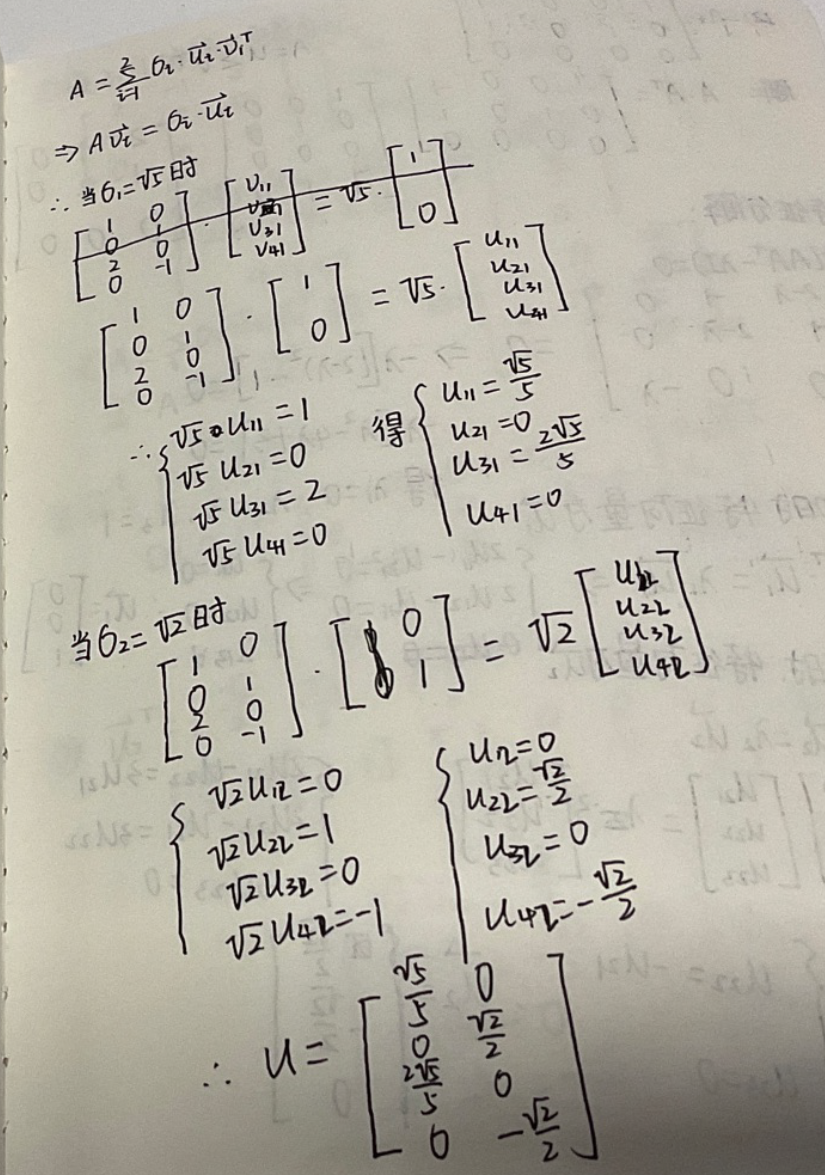 A = Σ_{i=1}^{2} σ_i · u⃗_i · v⃗_i^T
⇒ A v⃗_i = σ_i · u⃗_i
∴ 当σ₁=√5时
[1 0; 0 1; 2 0; 0 -1] · [v₁₁; v₂₁; v₃₁; v₄₁] = √5 · [1; 0]
[1 0; 0 1; 2 0; 0 -1] · [1; 0] = √5 · [u₁₁; u₂₁; u₃₁; u₄₁]
∴ { √5 u₁₁ = 1
√5 u₂₁ = 0
√5 u₃₁ = 2
√5 u₄₁ = 0
得 { u₁₁ = √5/5
u₂₁ = 0
u₃₁ = 2√5/5
u₄₁ = 0
当σ₂=√2时
[1 0; 0 1; 2 0; 0 -1] · [0; 1] = √2 [u₁₂; u₂₂; u₃₂; u₄₂]
{ √2 u₁₂ = 0
√2 u₂₂ = 1
√2 u₃₂ = 0
√2 u₄₂ = -1
{ u₁₂ = 0
u₂₂ = √2/2
u₃₂ = 0
u₄₂ = -√2/2
∴ U = [√5/5 0; 0 √2/2; 2√5/5 0; 0 -√2/2]